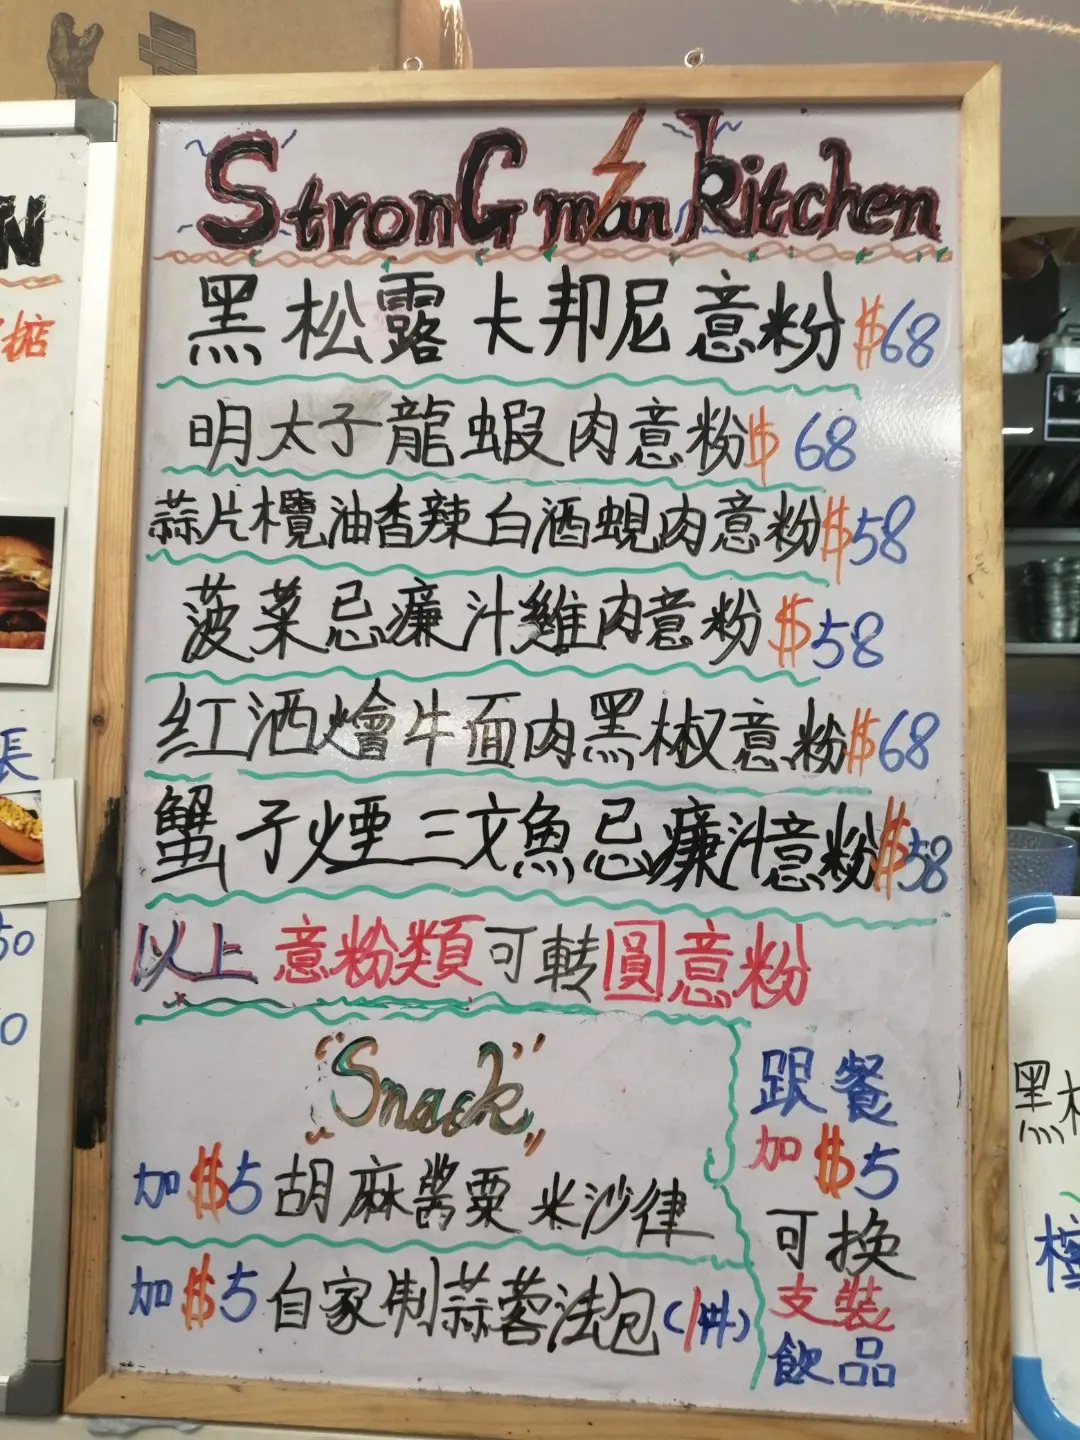 StronG man kitchen
黑松露卡邦尼意粉 $68
明太子龍蝦肉意粉 $68
蒜片欖油香辣白酒蜆肉意粉 $58
菠菜忌廉汁雞肉意粉 $58
紅酒燴牛面肉黑椒意粉 $68
蟹子煙三文魚忌廉汁意粉 $58
以上意粉類可轉圓意粉
"Snack"
加$5 胡麻醬粟米沙律
加$5 自家制蒜蓉法包(1件)
跟餐
加$5
可換
支裝
飲品
N
長
50
0
黑